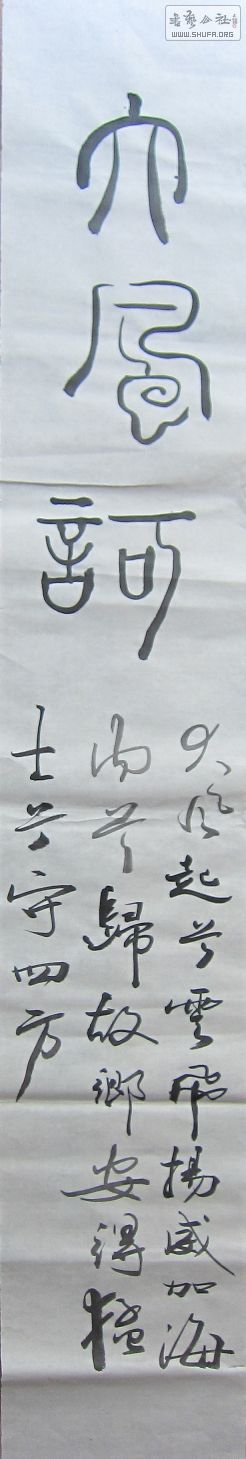 大風訶
大風起兮雲飛揚威加海
内兮歸故鄉安得猛
士兮守四方
書藝公社
WWW.SHUFA.ORG